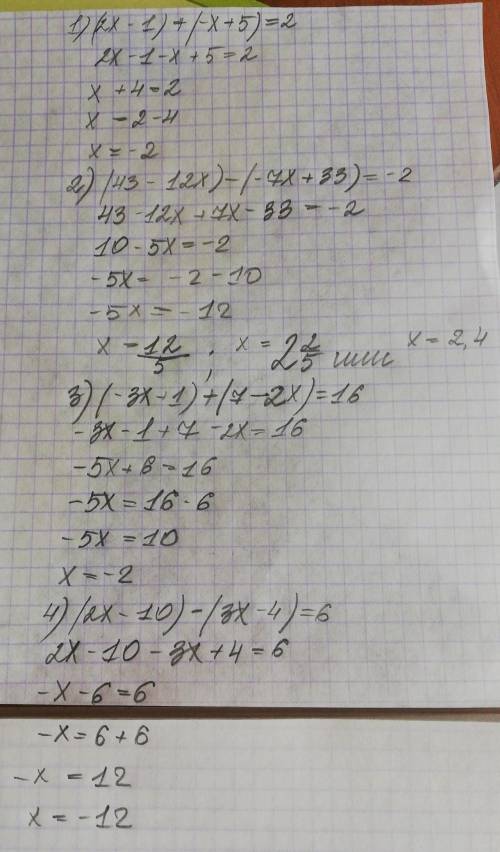 1) (2x - 1) + (-x + 5) = 2
2x - 1 - x + 5 = 2
x + 4 = 2
x = 2 - 4
x = -2
2) (43 - 12x) - (-7x + 33) = -2
43 - 12x + 7x - 33 = -2
10 - 5x = -2
-5x = -2 - 10
-5x = -12
x = 12/5 ; x = 2 2/5 или x = 2,4
3) (-3x - 1) + (7 - 2x) = 16
-3x - 1 + 7 - 2x = 16
-5x + 6 = 16
-5x = 16 - 6
-5x = 10
x = -2
4) (2x - 10) - (3x - 4) = 6
2x - 10 - 3x + 4 = 6
-x - 6 = 6
-x = 6 + 6
-x = 12
x = -12